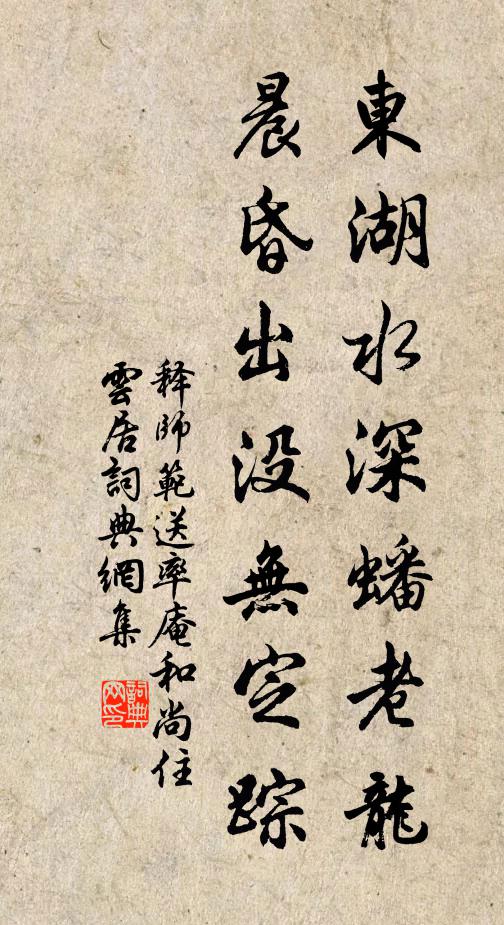 東湖水深蟠老龍
晨昏出没無定踪
释師範送率庵和尚住
雲居詞典網集
詞典网印